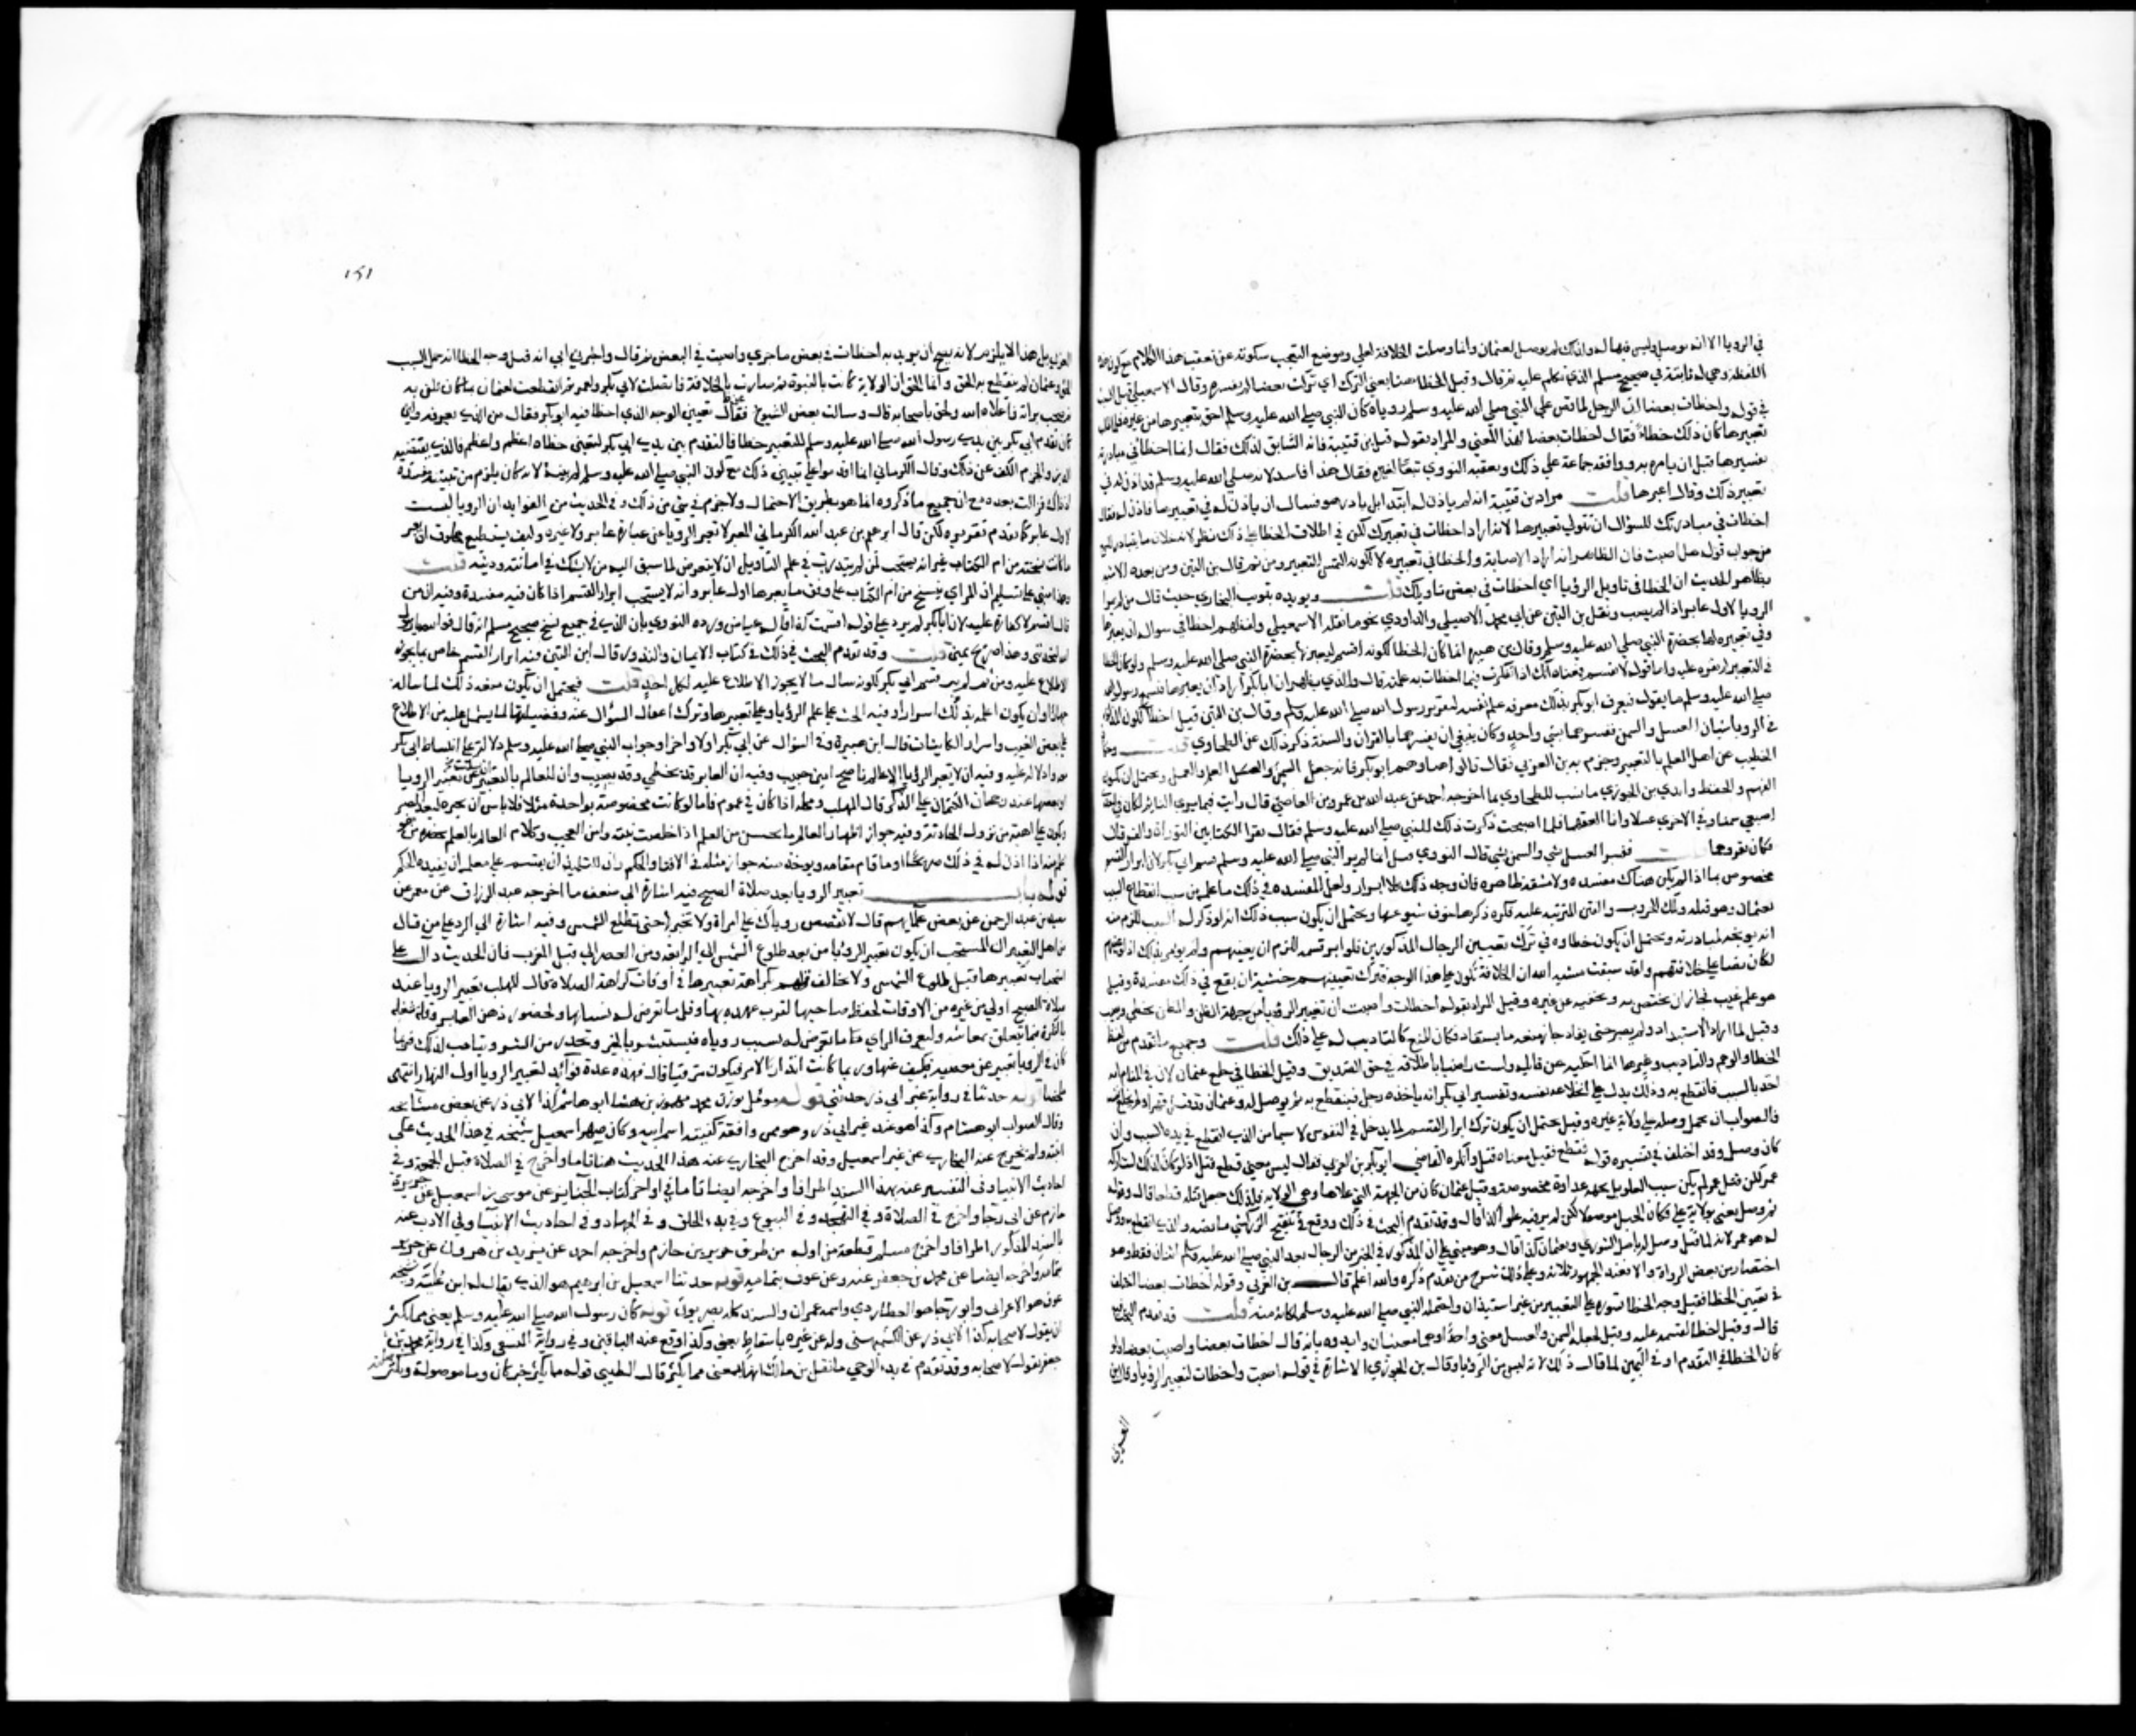 في الرويا الا انه يوصل وليس فيها له ولذلك لم يوصل لعثمان وانما وصلت الخلافة لعلي وموضع التعجب سكوته عن تعقب هذا الكلام مع كون هذه
اللفظة وهي له ثابتة في صحيح مسلم الذي يتكلم عليه ثم قال وقيل الخطا هنا بمعنى الترك اي تركت بعضا لم تفسره وقال الاسمعيلي قيل السبب
في قوله واخطات بعضا ان الرجل لما قص على النبي صلى الله عليه وسلم روياه كان النبي صلى الله عليه وسلم احق بتعبيرها من غيره فلما طلب
تعبيرها كان ذلك خطا فقال اخطات بعضا لهذا المعني والمراد بقوله قيل بن قتيبة فانه السابق لذلك فقال انما اخطا في مبادرته
بتفسيرها قبل ان يامره به ووافقه جماعة على ذلك وتعقبه النووي تبعا لغيره فقال هذا فاسد لانه صلى الله عليه وسلم قد اذن له في
تعبير ذلك وقال اعبرها قلت مراد بن قتيبة انه لم ياذن له ابتدا بل بادر هو فسال ان ياذن له في تعبيرها فاذن له فقال
اخطات في مبادرتك للسؤال ان تتولي تعبيرها لا انه اراد اخطات في تعبيرك لكن في اطلاق الخطا على ذلك نظر لانه خلاف ما يتبادر للسمع
من جواب قوله هل اصبت فان الظاهر انه اراد الاصابة والخطا في تعبيره لا لكونه التمس التعبير ومن ثم قال بن التين ومن بعده الاشبه
بظاهر الحديث ان الخطا في تاويل الرؤيا اي اخطات في بعض تاويلك قلت ويويده تبويب البخاري حيث قال من لم ير
الرويا لاول عابر اذا لم يصب ونقل بن التين عن ابي محمد الاصيلي والداودي نحو ما نقله الاسمعيلي ولفظهم اخطا في سواله ان يعبرها
وفي تعبيره لها بحضرة النبي صلى الله عليه وسلم وقال بن هبيرة انما كان الخطا لكونه اقسم ليعبرنها بحضرة النبي صلى الله عليه وسلم ولو كان الخطا
في التعبير لم يقره عليه واما قوله لا تقسم فمعناه انك اذا تفكرت فيما اخطات به علمته قال والذي يظهر ان ابا بكر اراد ان يعبرها فيسمع رسول الله
صلى الله عليه وسلم ما يقوله فيعرف ابو بكر بذلك معرفة علم نفسه لتقرير رسول الله صلى الله عليه وسلم وقال بن التين قيل اخطا لكون المذكور
في الرويا شيئان العسل والسمن ففسرهما بشي واحد وكان ينبغي ان يفسرهما بالقران والسنة ذكر ذلك عن الطحاوي قلت وحكاه
الخطيب عن اهل العلم بالتعبير وجزم به بن العربي فقال قالوا هنا وهم ابو بكر فانه جعل السمن والعسل معنى واحدا ويحتمل ان يكون
الفهم والحفظ وايد بن الجوزي ما نسب للطحاوي بما اخرجه احمد عن عبد الله بن عمرو بن العاصي قال رايت فيما يري النايم لكان في احدى
اصبعي سمنا وفي الاخري عسلا وانا العقهما فلما اصبحت ذكرت ذلك للنبي صلى الله عليه وسلم فقال تقرا الكتابين التوراة والفرقان
فكان يقروهما قلت ففسر العسل بشي والسمن بشي قال النووي قيل انما لم يبر النبي صلى الله عليه وسلم قسم ابي بكر لان ابرار القسم
مخصوص بما اذا لم يكن هناك مفسدة ولا مشقة ظاهرة فان وجد ذلك فلا ابرار ولعل المفسدة في ذلك ما علمه من سبب انقطاع السبب
بعثمان وهو قتله وتلك الحروب والفتن المترتبة عليه فكره ذكرها خوف شيوعها ويحتمل ان يكون سبب ذلك انه لو ذكر له السبب للزم منه
انه يوبخه لمبادرته ويحتمل ان يكون خطاوه في ترك تعيين الرجال المذكورين فلو ابر قسمه للزم ان يعينهم ولم يومر بذلك اذ لو عينهم
لكان نصا على خلافتهم وقد سبقت مشية الله ان الخلافة تكون على هذا الوجه فترك تعيينهم خشية ان يقع في ذلك مفسدة وقيل
هو علم غيب فجاز ان يختص به ويخفيه عن غيره وقيل المراد بقوله اخطات واصبت ان تعبير الرؤيا من جهة الظن والظن يخطي ويصيب
وقيل لما اراد الاستبداد ولم يصبر حتى يفاد جاز منعه ما يستفاد فكان المنع كالتاديب له على ذلك قلت وجميع ما تقدم من لفظ
الخطا والوهم والتاديب وغيرها انما احكيه عن قائله ولست راضيا باطلاقه في حق الصديق وقيل الخطا في خلع عثمان لانه في المنام انه
اخذ بالسبب فانقطع به وذلك يدل على انخلاعه بنفسه وتفسير ابي بكر انه ياخذه رجل فينقطع به ثم يوصل له وعثمان قد قتل قهرا ولم يخلع نفسه
فالصواب ان يحمل وصله على ولاية غيره وقيل يحتمل ان يكون ترك ابرار القسم لما يدخل في النفوس لا سيما من الذي انقطع في يده السبب وان
كان وصل وقد اختلف في تفسيره قوله فقطع فقيل معناه قتل وانكره القاضي ابو بكر بن العربي فقال ليس معني قطع قتل اذ لو كان كذلك لشاركه
عمر لكن قتل عمر لم يكن سبب العلو بل بجهة عداوة مخصوصة وقتل عثمان كان من الجهة التي علا بها وهي الولاية فلذلك جعل قتله قطعا قال وقوله
ثم وصل يعني بولاية علي فكان الحبل موصولا لكن لم ير فيه علوا كذا قال وقد تقدم البحث في ذلك ووقع في تنقيح الزركشي ما نصه والذي انقطع به ووصل
له هو عمر لانه لما قتل وصل له باهل الشوري وبعثمان كذا قال وهو مبني على ان المذكور في الخبر من الرجال بعد النبي صلى الله عليه وسلم اثنان فقط وهو
اختصار من بعض الرواة والا فعند الجمهور ثلاثة وعلى ذلك شرح من تقدم ذكره والله اعلم قال بن العربي وقوله اخطات بعضا اختلف
في تعيين الخطا فقيل وجه الخطا تسوره على التعبير من غير استيذان واحتمله النبي صلى الله عليه وسلم لمكانه منه قلت قد تقدم البحث
قال وقيل اخطا لقسمه عليه وقيل لجعله السمن والعسل معنى واحدا وهما معنيان وايدوه بانه قال اخطات بعضا واصبت بعضا ولو
كان الخطا في التقدم او في اليمين لما قال ذلك لانه ليس من الرؤيا وقال بن الجوزي الاشارة في قوله اصبت واخطات لتعبير الرؤيا وقال ابن
العربي
١٥١
العربي بل هذا لا يلزم لانه يصح ان يريد به اخطات في بعض ما جري واصبت في البعض ثم قال واخبرني ابي انه قيل وجه الخطا انه جعل السبب
الحق وعثمان لم ينقطع به الحق وانما الحق ان الولاية كانت بالنبوة ثم صارت بالخلافة فاتصلت لابي بكر ولعمر ثم انقطعت لعثمان بما كان ظن به
فصحت براته فاعلاه الله ولحق باصحابه قال وسالت بعض الشيوخ عن تعيين الوجه الذي اخطا فيه ابو بكر فقال من الذي يعرفه ولئن
كان تقدم ابي بكر بين يدي رسول الله صلى الله عليه وسلم للتعبير خطا فالتقدم بين يدي ابي بكر لتعيين خطاه اعظم واعظم فالذي يقتضيه
الدين والحزم الكف عن ذلك وقال الكرماني انما اقدموا على تبيين ذلك مع كون النبي صلى الله عليه وسلم لم يبينه لانه كان يلزم من تبيينه مفسدة
اذ ذاك فزالت بعده مع ان جميع ما ذكروه انما هو بطريق الاحتمال ولا جزم في شي من ذلك وفي الحديث من الفوايد ان الرويا ليست
لاول عابر كما تقدم تقريره لكن قال ابرهيم بن عبد الله الكرماني المعبر لا تغير الرويا عن عبارة عابر ولا غيره وكيف يستطيع مخلوق ان يغير
ما كانت نسخته من ام الكتاب غير انه يستحب لمن لم يتدرب في علم التاويل ان لا يتعرض لما سبق اليه من لا يشك في امانته ودينه قلت
وهذا مبني على تسليم ان المراي ينسخ من ام الكتاب على وفق ما يعبرها اول عابر وانه لا يستحب ابرار القسم اذا كان فيه مفسدة وفيه ان من
قال اقسم لا كفارة عليه لان ابا بكر لم يزد على قوله اقسمت كذا قاله عياض ورده النووي بان الذي في جميع نسخ صحيح مسلم انه قال فوالله يا رسول
الله لتحدثني وهذا صريح يمين قلت وقد تقدم البحث في ذلك في كتاب الايمان والنذور قال ابن التين فيه ابرار القسم خاص بما يجوز
الاطلاع عليه ومن ثم لم يبر قسم ابي بكر لكونه سال ما لا يجوز الاطلاع عليه لكل احد قلت فيحتمل ان يكون منعه ذلك لما ساله
جهارا وان يكون اعلمه بذلك اسرارا وفيه الحث على علم الرؤيا وعلى تعبيرها وترك اغفال السؤال عنه وفضيلتها لما يشتمل عليه من الاطلاع
على بعض الغيب واسرار الكاينات قال ابن هبيرة وفي السؤال من ابي بكر اولا واخرا وجواب النبي صلى الله عليه وسلم دلالة على انبساط ابي بكر
معه وادلاله عليه وفيه ان لا يعبر الرؤيا الا عالم ناصح امين حبيب وفيه ان العابر قد يخطي وقد يصيب وان للعالم بالتعبير ان يسكت عن تعبير الرويا
او بعضها عند رجحان الكتمان على الذكر قال المهلب ومحله اذا كان في عموم فاما لو كانت مخصوصة بواحد مثلا فلا باس ان يخبره ليعد الصبر
ويكون على اهبة من نزول الحادثة وفيه جواز اظهار العالم ما يحسن من العلم اذا خلصت نيته وامن العجب وكلام العالم بالعلم بحضرة من هو
اعلم منه اذا اذن له في ذلك صريحا او ما قام مقامه ويوخذ منه جواز مثله في الافتا والحكم وان للتلميذ ان يقسم على معلمه ان يفيده الحكم
قوله باب تعبير الرويا بعد صلاة الصبح فيه اشارة الى ضعف ما اخرجه عبد الرزاق عن معمر عن
سعيد بن عبد الرحمن عن بعض علمايهم قال لا تقصص روياك على امراة ولا تخبر بها حتى تطلع الشمس وفيه اشارة الى الرد على من قال
من اهل التعبير ان المستحب ان يكون تعبير الرؤيا من بعد طلوع الشمس الى الرابعة ومن العصر الى قبل المغرب فان الحديث دال على
استحباب تعبيرها قبل طلوع الشمس ولا يخالف قولهم بكراهة تعبيرها في اوقات كراهة الصلاة قال المهلب تعبير الرويا عند
صلاة الصبح اولى من غيره من الاوقات لحفظ صاحبها لها لقرب عهده بها وقبل ما يعرض له نسيانها ولحضور ذهن العابر وقلة شغله
بالفكرة فيما يتعلق بمعاشه وليعرف الراي ما يعرض له بسبب روياه فيستبشر بالخير ويحذر من الشر ويتاهب لذلك فربما
كان في الرويا تحذير عن معصية فيكف عنها وربما كانت انذارا لامر فيكون له مترقبا قال فهذه عدة فوايد لتعبير الرويا اول النهار انتهى
ملخصا قوله حدثنا في رواية غير ابي ذر حدثني قوله مومل بوزن محمد مهموز بن هشام ابو هاشم كذا لابي ذر عن بعض مشايخه
وقال الصواب ابو هشام وكذا هو عند غير ابي ذر وهو ممن وافقت كنيته اسم ابيه وكان صهر اسمعيل شيخه في هذا الحديث على
ابنته ولم يخرج عنه البخاري عن غير اسمعيل وقد اخرج البخاري عنه هذا الحديث هنا تاما واخرج في الصلاة قبل الجمعة وفي
احاديث الانبيا وفي التفسير عنه بهذا السند اطرافا واخرجه ايضا تاما في اواخر كتاب الجنايز عن موسى بن اسمعيل عن جرير بن
حازم عن ابي رجا واخرج في الصلاة وفي التهجد وفي البيوع وفي بدء الخلق وفي الجهاد وفي احاديث الانبيا وفي الادب عنه
بالسند المذكور اطرافا واخرج مسلم قطعة من اوله من طريق جرير بن حازم واخرجه احمد عن يزيد بن هرون عن جرير
بتمامه واخرجه ايضا عن محمد بن جعفر غندر عن عوف بتمامه قوله حدثنا اسمعيل بن ابرهيم هو الذي يقال له ابن علية وشيخه
عوف هو الاعرابي وابو رجا هو العطاردي واسمه عمران والسند كله بصريون قوله كان رسول الله صلى الله عليه وسلم يعني مما يكثر
ان يقول لاصحابه كذا لابي ذر عن الكشميهني وله عن غيره باسقاط يعني وكذا وقع عند الباقين وفي رواية النسفي وكذا في رواية محمد بن
جعفر مما يقول لاصحابه وقد تقدم في بدء الوحي ما نقل بن مالك انها بمعنى مما يكثر قال الطيبي قوله مما يكثر خبر كان وما موصولة ويكثر صلته